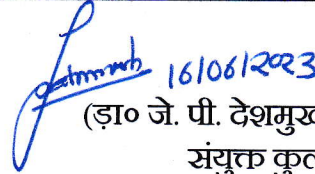 16/06/2023
(डा० जे. पी. देशमुख
संयुक्त कुल